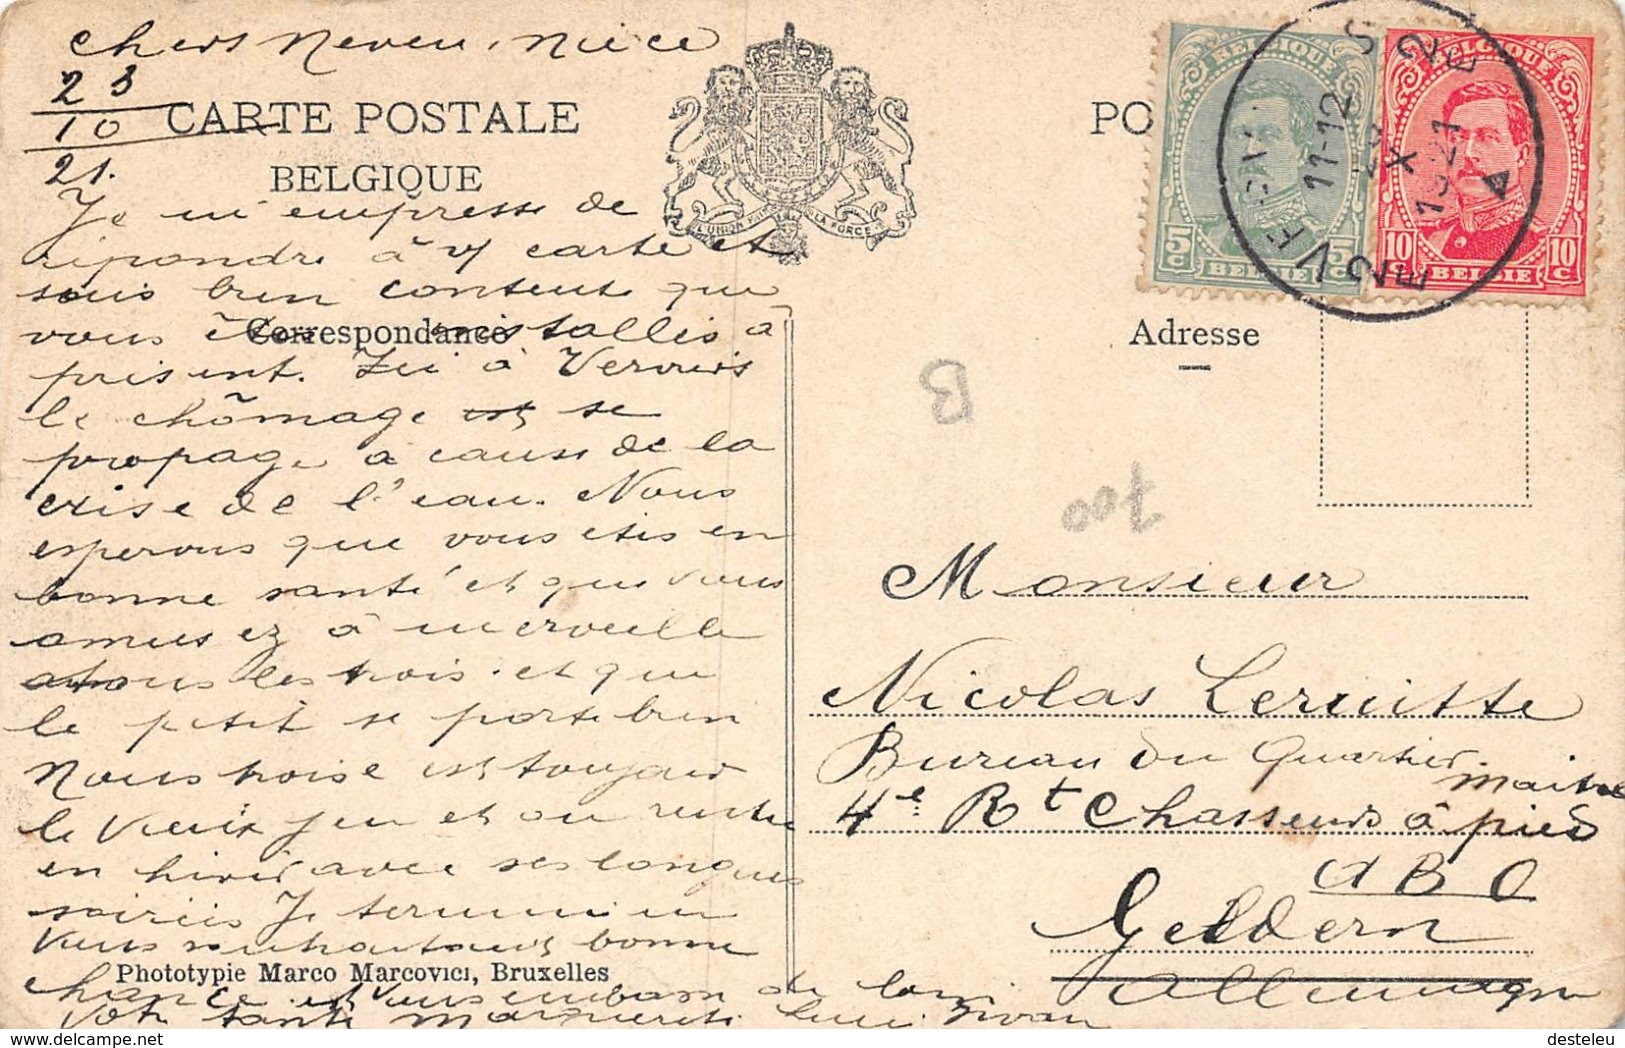 Chers Neveu, nièce
23
10
21.
CARTE POSTALE
BELGIQUE
L'UNION FAIT LA FORCE
PO
BELGIQUE
5c 5c
BELGIË
BELGIQUE
10c 10c
BELGIË
11-12
X
1921
Je m'empresse de
répondre à v/ carte et
suis bien content que
vous êtes installés à
Correspondance
présent. Ici à Verviers
le chômage se
propage à cause de la
crise de l'eau. Nous
esperons que vous etes en
bonne santé et que vous
amusez à merveille
tous les trois et que
le petit se porte bien
Nous trois c'est toujours
le vieux jeu et on rentre
en hiver avec ses longues
soirées Je termine en
vous souhaitant bonne
Phototypie Marco Marcovici, Bruxelles
chance et vous embrasse de loin
Votre tante Marguerite
Adresse
B
700
Monsieur
Nicolas Leruitte
Bureau du Quartier
maitre
4e Rt Chasseurs à pied
A B O
Geldern
Allemagne
desteleu